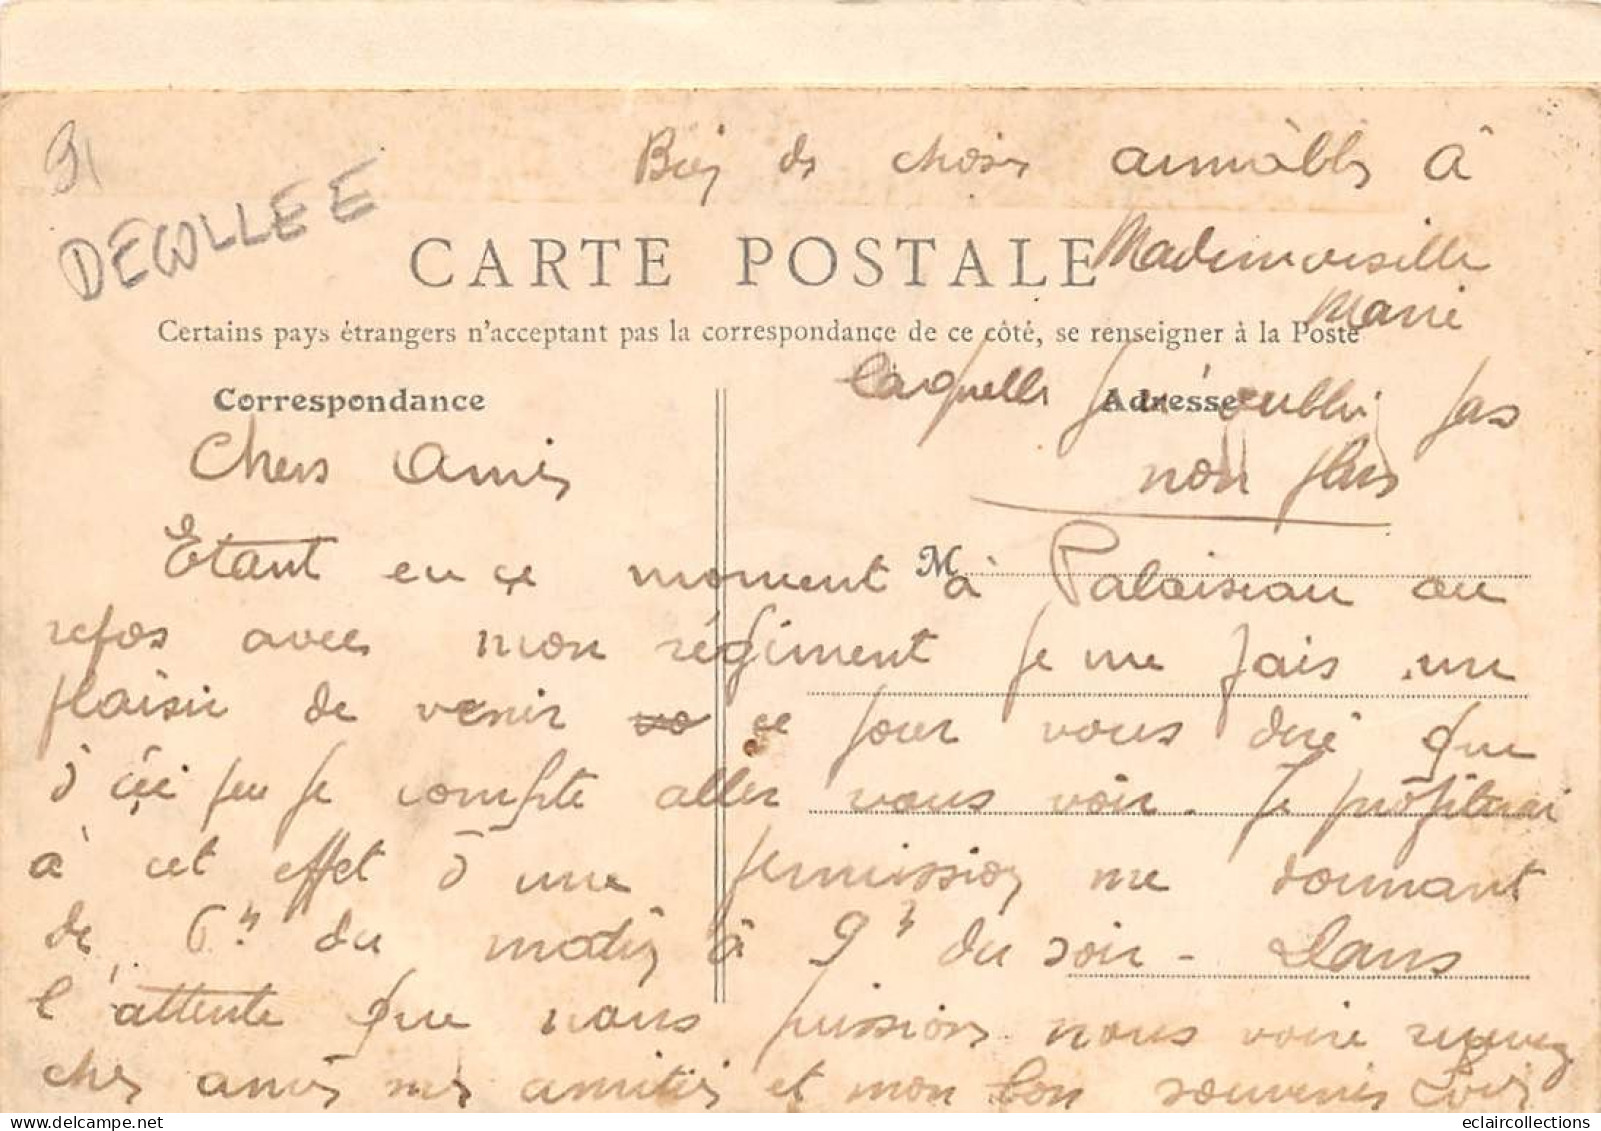 91
DECOLLEE
Bien de choses aimables à
Mademoiselle
Marie
CARTE POSTALE
Certains pays étrangers n'acceptant pas la correspondance de ce côté, se renseigner à la Poste
laquelle j'oubli pas
non plus
Correspondance
Adresse
Chers Amis
M
Etant en ce moment à Palaiseau au
repos avec mon régiment je me fais un
plaisir de venir ce jour vous dire que
d'ici peu je compte aller vous voir. Je profiterai
à cet effet d'une permission me donnant
de 6h du matin à 9h du soir - Dans
l'attente que nous puissions nous voire recevez
cher amis mes amitiés et mon bon souvenir Louis
eclaircollections